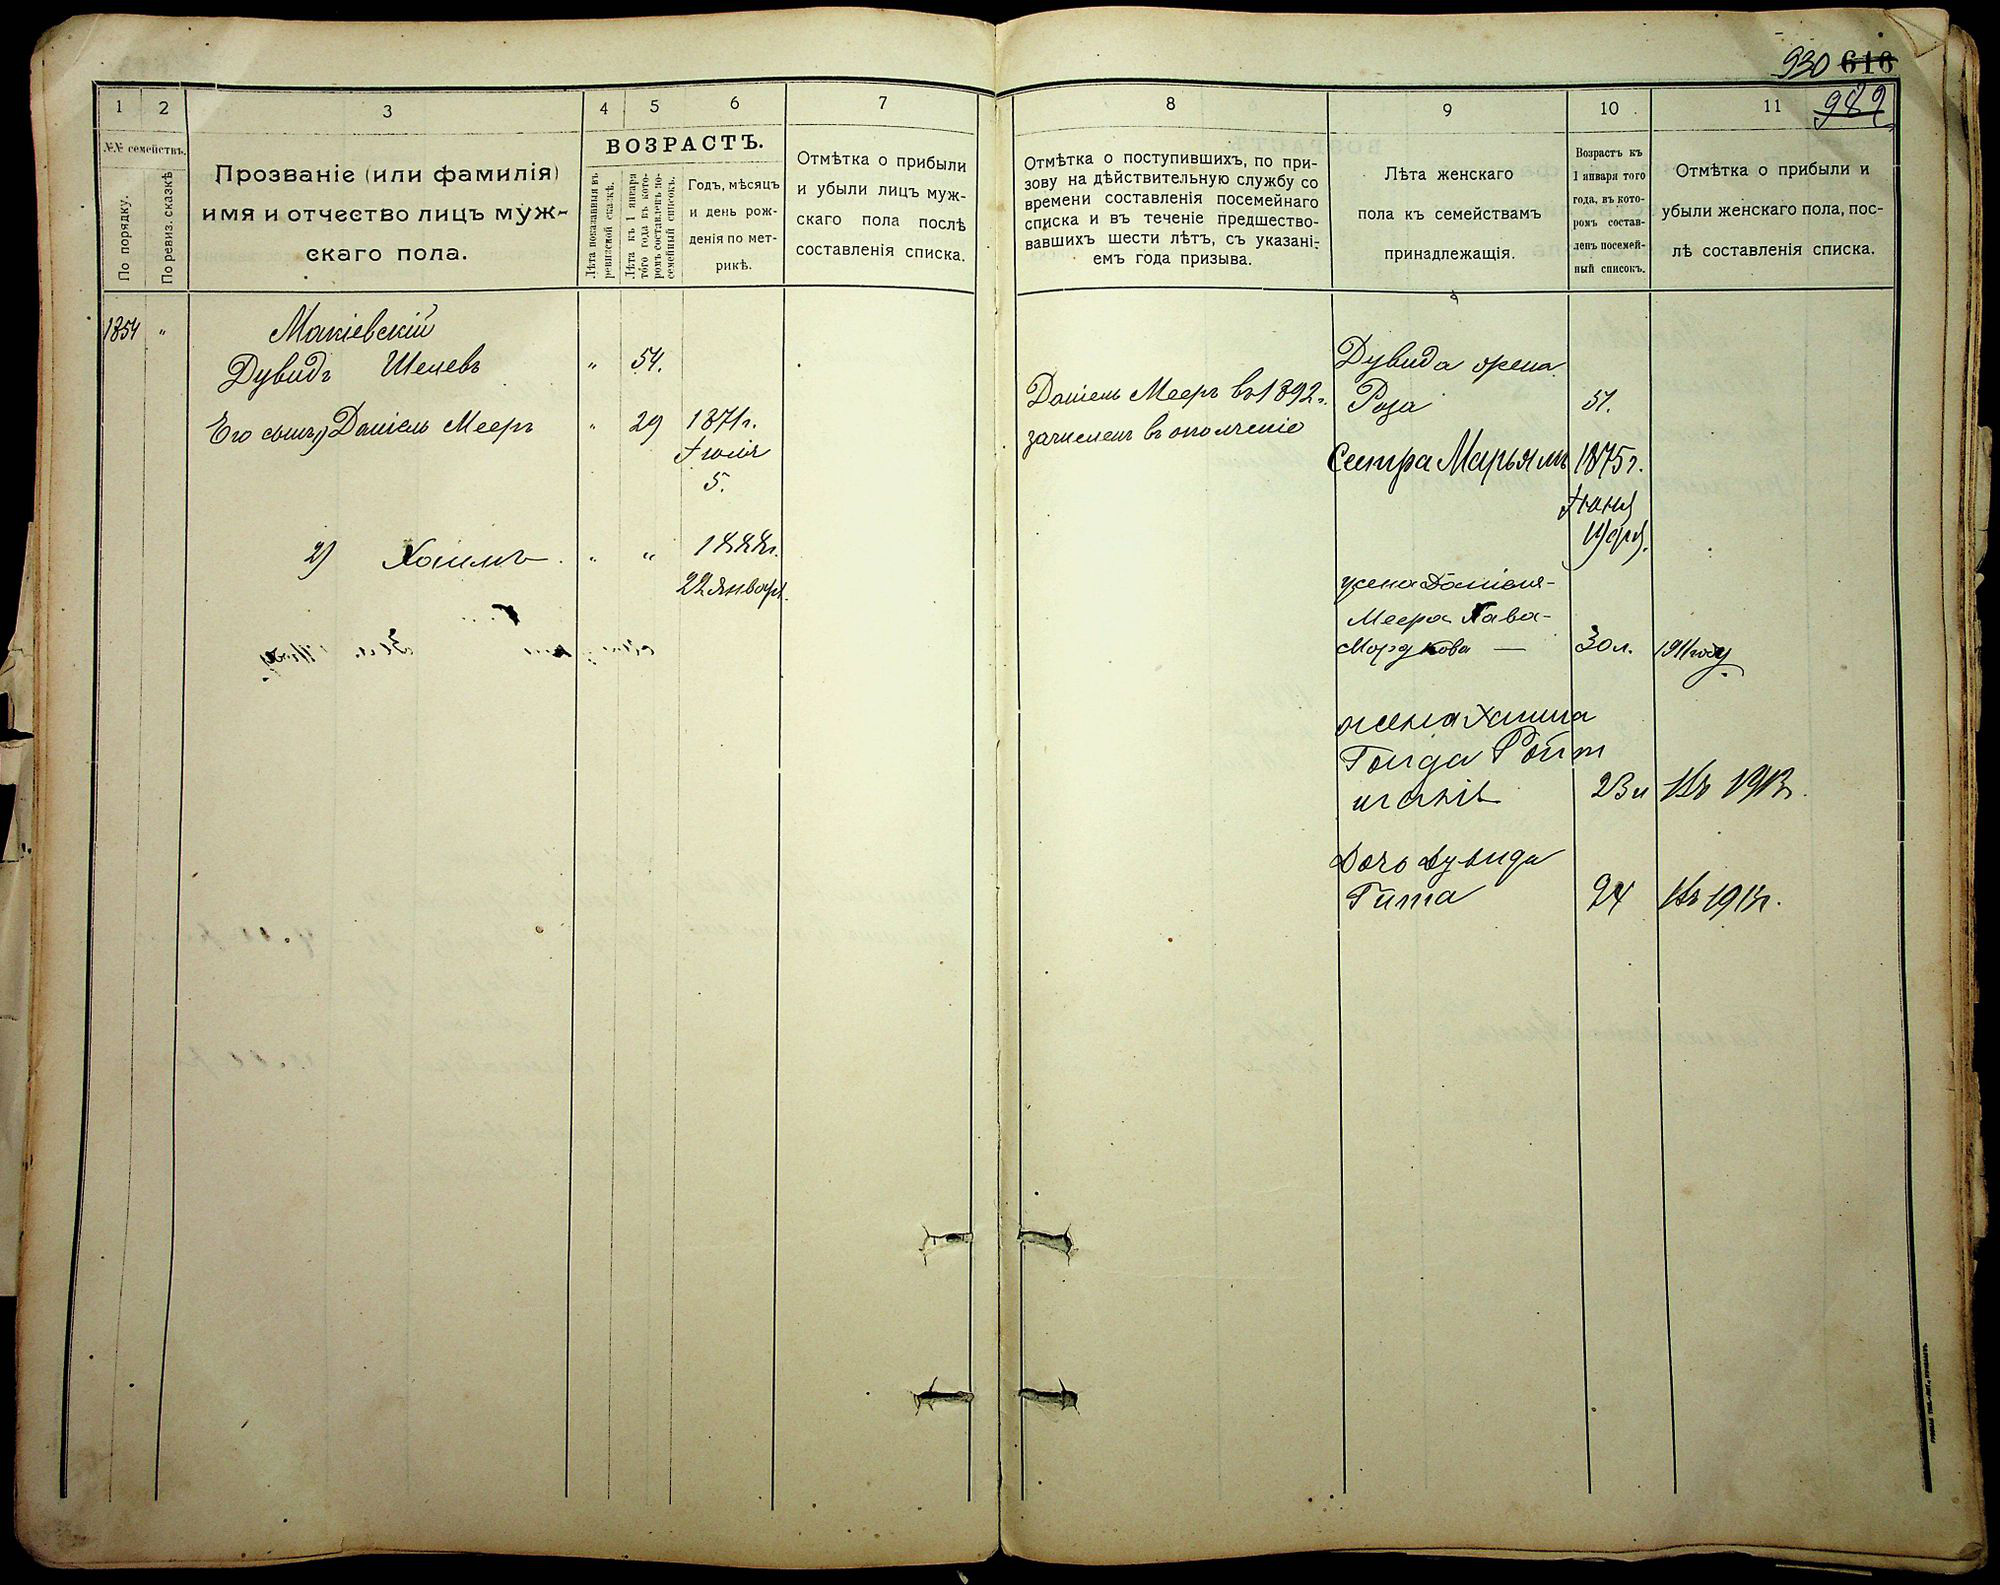 930 616
989
1 2 3 4 5 6 7 8 9 10 11
№№ семействъ.
По порядку.
По ревиз. сказкѣ
Прозваніе (или фамилія)
имя и отчество лицъ муж-
скаго пола.
ВОЗРАСТЪ.
Лѣта показанныя въ
ревизской сказкѣ.
Лѣта къ 1 января
того года въ кото-
ромъ составленъ по-
семейный списокъ.
Годъ, мѣсяцъ
и день рож-
денія по мет-
рикѣ.
Отмѣтка о прибыли
и убыли лицъ муж-
скаго пола послѣ
составленія списка.
Отмѣтка о поступившихъ, по при-
зову на дѣйствительную службу со
времени составленія посемейнаго
списка и въ теченіе предшество-
вавшихъ шести лѣтъ, съ указані-
емъ года призыва.
Лѣта женскаго
пола къ семействамъ
принадлежащія.
Возрастъ къ
1 января того
года, въ кото-
ромъ состав-
ленъ посемей-
ный списокъ.
Отмѣтка о прибыли и
убыли женскаго пола, пос-
лѣ составленія списка.
1854 " Макіевскій
Дувидъ Шлемовъ " 54.
Его сынъ 1) Даніель Мееръ " 29 1871 г.
Іюля
5.
2) Хаимъ " " 1888 г.
22 Январ.
Даніель Мееръ въ 1892 г.
зачисленъ въ ополченіе
Дувида жена
Роза 51.
Сестра Марьямъ 1875 г.
Іюня
жена Даніеля-
Меера Хава-
Мордкова — 30 л. 1911 году
жена Хаима
Голда Ройт
23 л Въ 1913 г.
Дочь Дувида
Гита 24 Въ 191